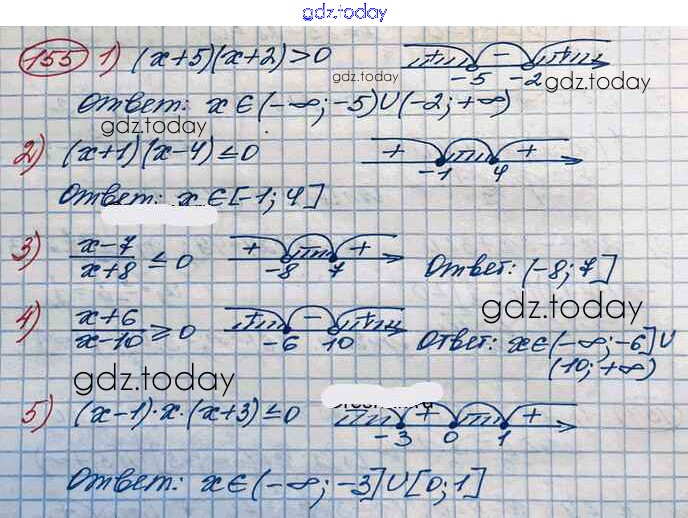 gdz.today
155 1) (x+5)(x+2)>0 + − + -5 -2
gdz.today gdz.today
Ответ: x∈(-∞;-5)∪(-2;+∞)
gdz.today
2) (x+1)(x-4)≤0 + + -1 4
Ответ: x∈[-1;4]
3) x-7/x+8 ≤ 0 + + -8 7 Ответ: (-8;7]
gdz.today
4) x+6/x-10 ≥ 0 + − + -6 10 Ответ: x∈(-∞;-6]∪
(10;+∞)
gdz.today
5) (x-1)·x·(x+3)≤0 + + -3 0 1
Ответ: x∈(-∞;-3]∪[0;1]